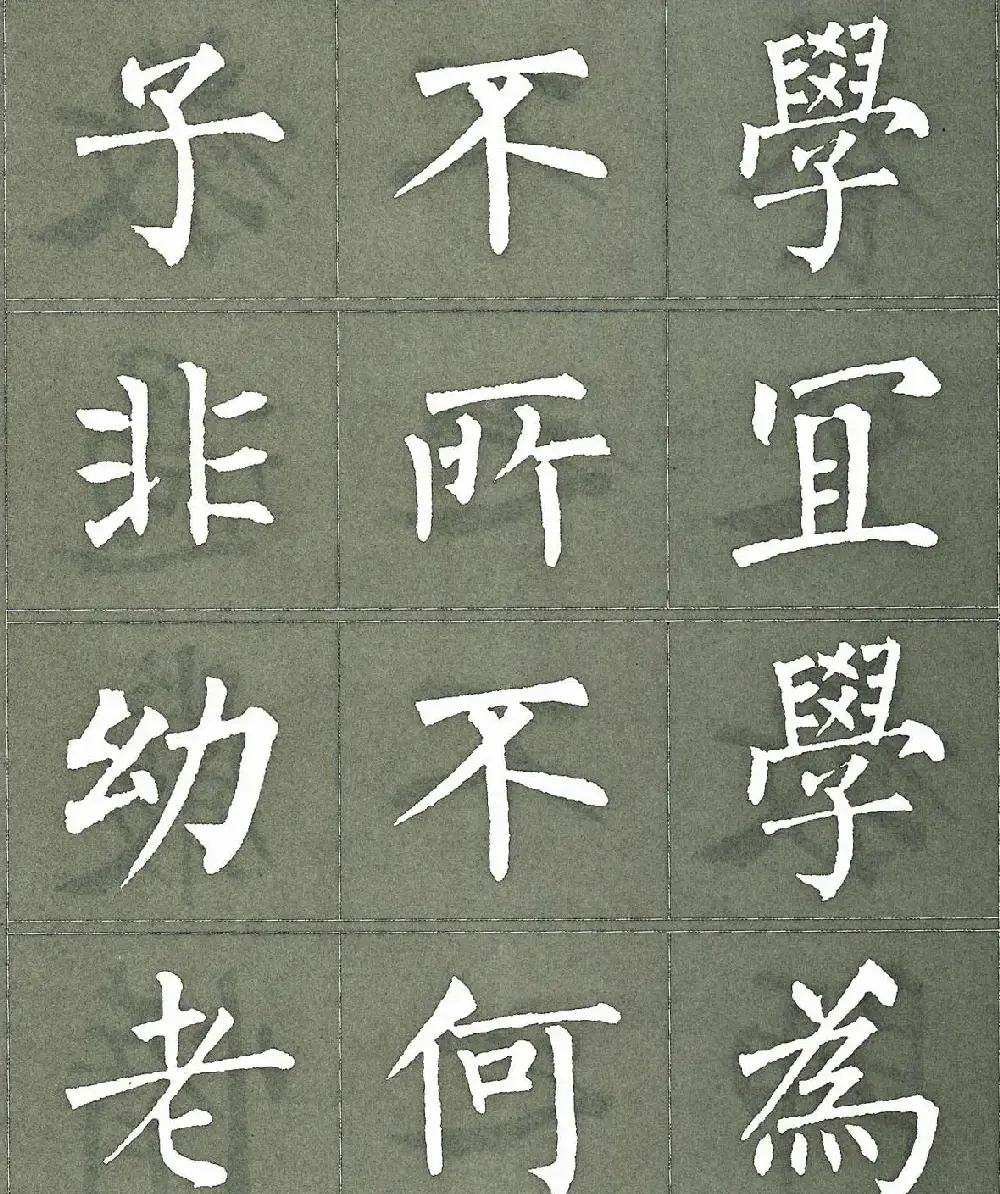 子不學
非所宜
幼不學
老何為